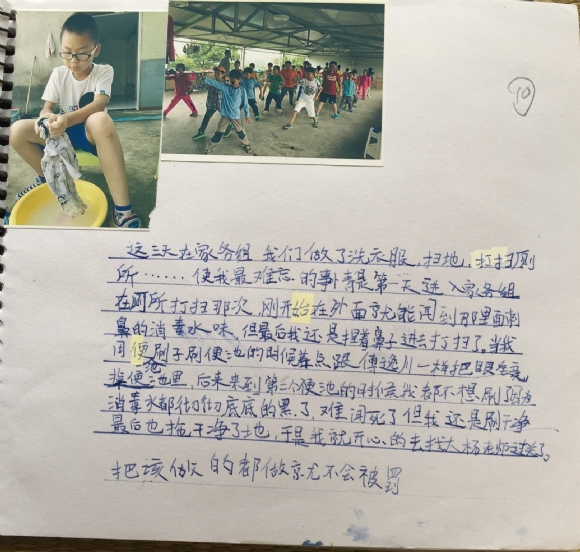 10
这三天在家务组,我们做了洗衣服,扫地,打扫厕
所……使我最难忘的事情是第一天进入家务组
在厕所打扫那次,刚开始在外面就能闻到那里面刺
鼻的消毒水味,但最后我还是捏着鼻子进去打扫了。当我
用便刷子刷便池的时候差点跟傅逸川一样把眼
掉便池里,后来来到第三个便池的时候我都不想刷了因为
消毒水都彻彻底底的黑了,难闻死了但我还是刷干净
最后也拖干净了地,于是我就开心的去找大杨老师过关了。
把该做的都做就不会被罚